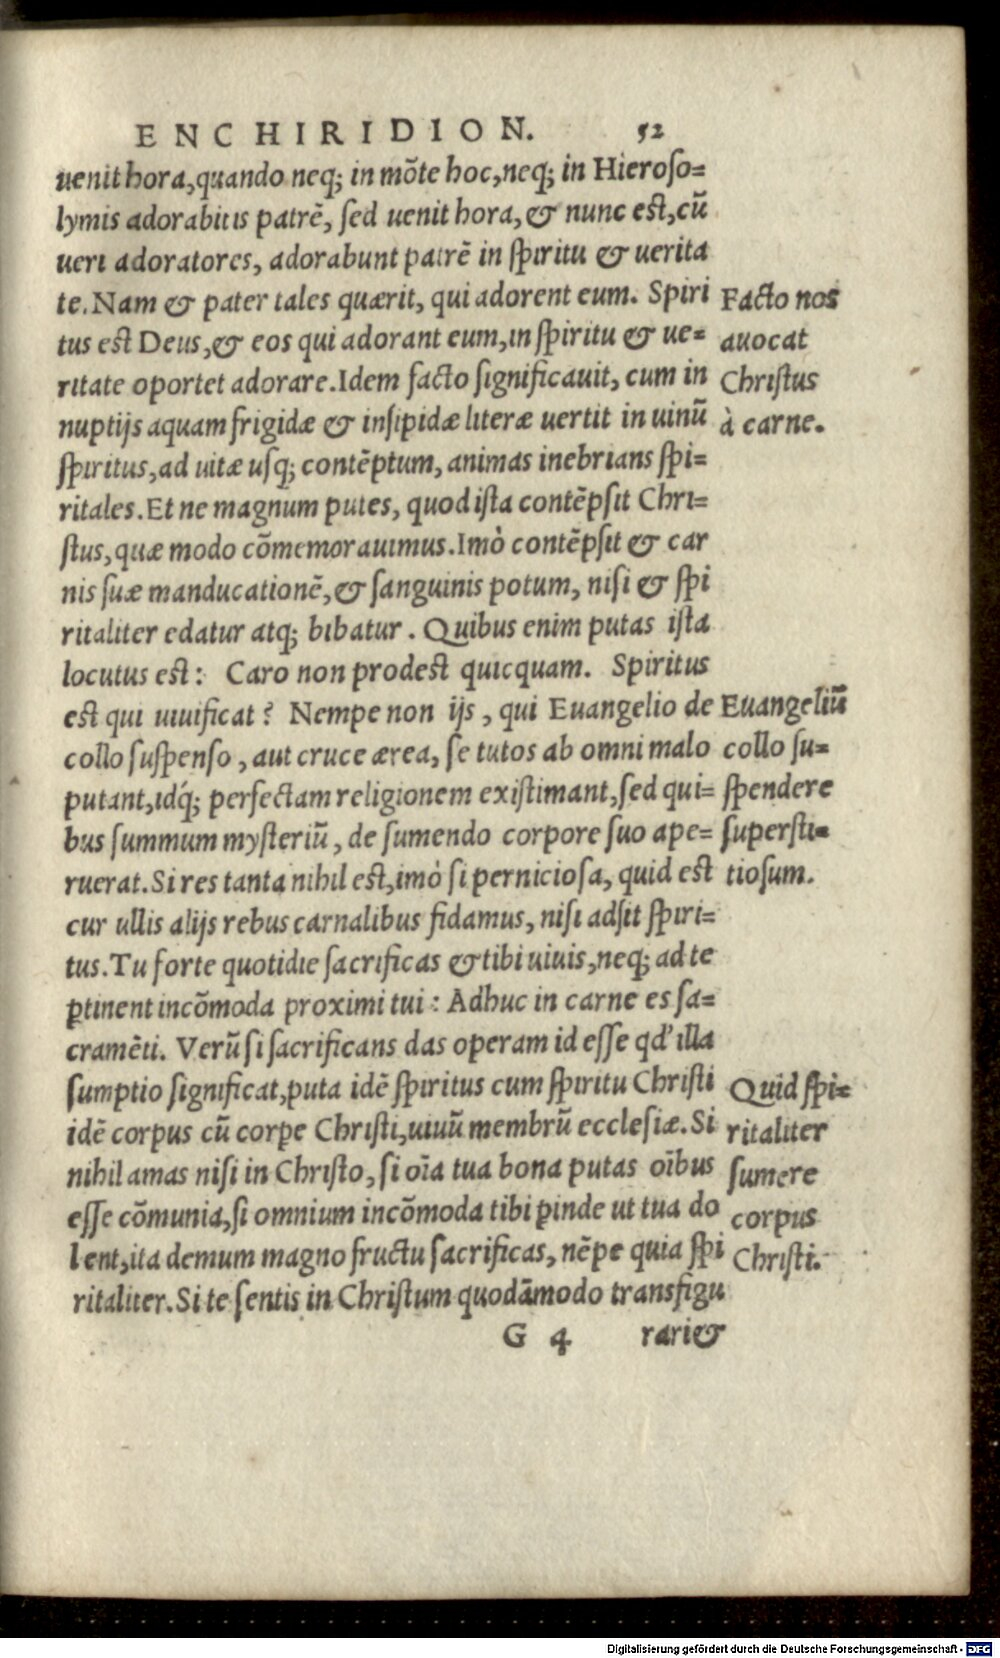 ENCHIRIDION. 52
uenit hora, quando neq; in mõte hoc, neq; in Hieroſo=
lymis adorabitis patrẽ, ſed uenit hora, & nunc eſt, cũ
ueri adoratores, adorabunt patrẽ in ſpiritu & uerita
te. Nam & pater tales quærit, qui adorent eum. Spiri
tus eſt Deus, & eos qui adorant eum, in ſpiritu & ue=
ritate oportet adorare. Idem facto ſignificauit, cum in
nuptijs aquam frigidæ & inſipidæ literæ uertit in uinũ
ſpiritus, ad uitæ uſq; contẽptum, animas inebrians ſpi=
ritales. Et ne magnum putes, quod iſta contẽpſit Chri=
ſtus, quæ modo cõmemorauimus. Imò contẽpſit & car
nis ſuæ manducationẽ, & ſanguinis potum, niſi & ſpi
ritaliter edatur atq; bibatur. Quibus enim putas iſta
locutus eſt: Caro non prodeſt quicquam. Spiritus
eſt qui uiuificat? Nempe non ijs, qui Euangelio de
collo ſuſpenſo, aut cruce ærea, ſe tutos ab omni malo
putant, idq́; perfectam religionem exiſtimant, ſed qui=
bus ſummum myſteriũ, de ſumendo corpore ſuo ape=
ruerat. Si res tanta nihil eſt, imò ſi pernicioſa, quid eſt
cur ullis alijs rebus carnalibus fidamus, niſi adſit ſpiri=
tus. Tu forte quotidie ſacrificas & tibi uiuis, neq; ad te
ꝑtinent incõmoda proximi tui: Adhuc in carne es ſa=
cramẽti. Verũ ſi ſacrificans das operam id eſſe qd' illa
ſumptio ſignificat, puta idẽ ſpiritus cum ſpiritu Chriſti
idẽ corpus cũ corpe Chriſti, uiuũ membrũ eccleſiæ. Si
nihil amas niſi in Chriſto, ſi oĩa tua bona putas oĩbus
eſſe cõmunia, ſi omnium incõmoda tibi ꝑinde ut tua do
lent, ita demum magno fructu ſacrificas, nẽpe quia ſpi
ritaliter. Si te ſentis in Chriſtum quodãmodo transfigu
G 4 rari &
Facto nos
auocat
Chriſtus
à carne.
Euangeliũ
collo ſu=
ſpendere
ſuperſti=
tioſum.
Quid ſpi=
ritaliter
ſumere
corpus
Chriſti.
Digitalisierung gefördert durch die Deutsche Forschungsgemeinschaft - DFG